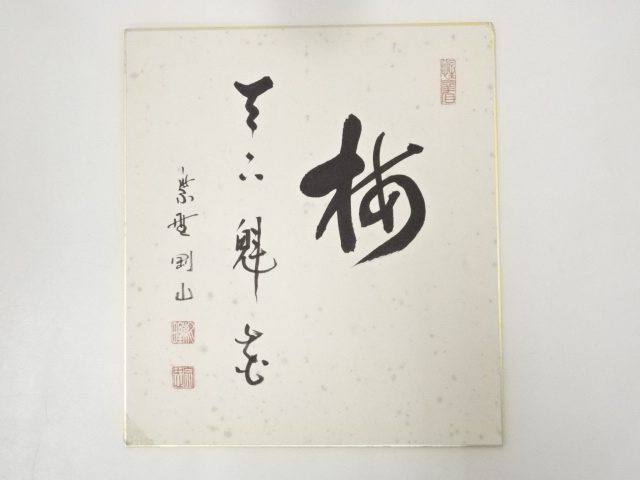 梅
天下魁花
紫野剛山